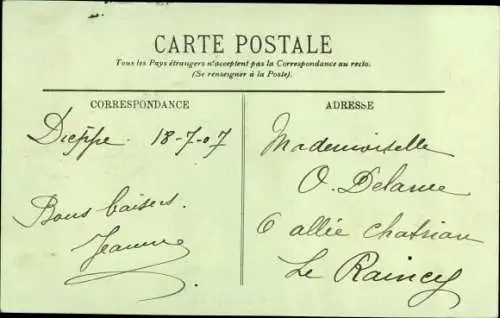 CARTE POSTALE
Tous les Pays étrangers n'acceptent pas la Correspondance au recto.
(Se renseigner à la Poste).
CORRESPONDANCE
Dieppe 18-7-07
Bons baisers.
Jeanne
ADRESSE
Mademoiselle
O. Delarue
6 allée Chatrian
Le Raincy